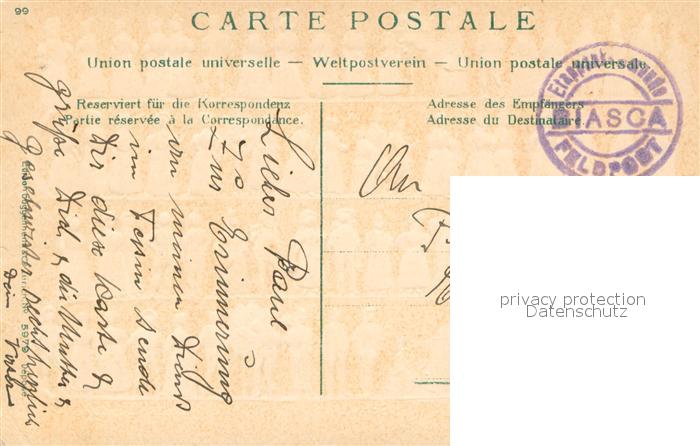 99
CARTE POSTALE
Union postale universelle — Weltpostverein — Union postale universelle.
Reserviert für die Korrespondenz
Partie réservée à la Correspondance.
Adresse des Empfängers
Adresse du Destinataire.
FELDPOST
Lieber Paul
Zur Erinnerung
von meinem Dienst
im Tessin sende
Dir diese Karte &
grüsse Dich & die Mutter &
Geschwister recht herzlich
Dein Vater
An
5979
privacy protection
Datenschutz